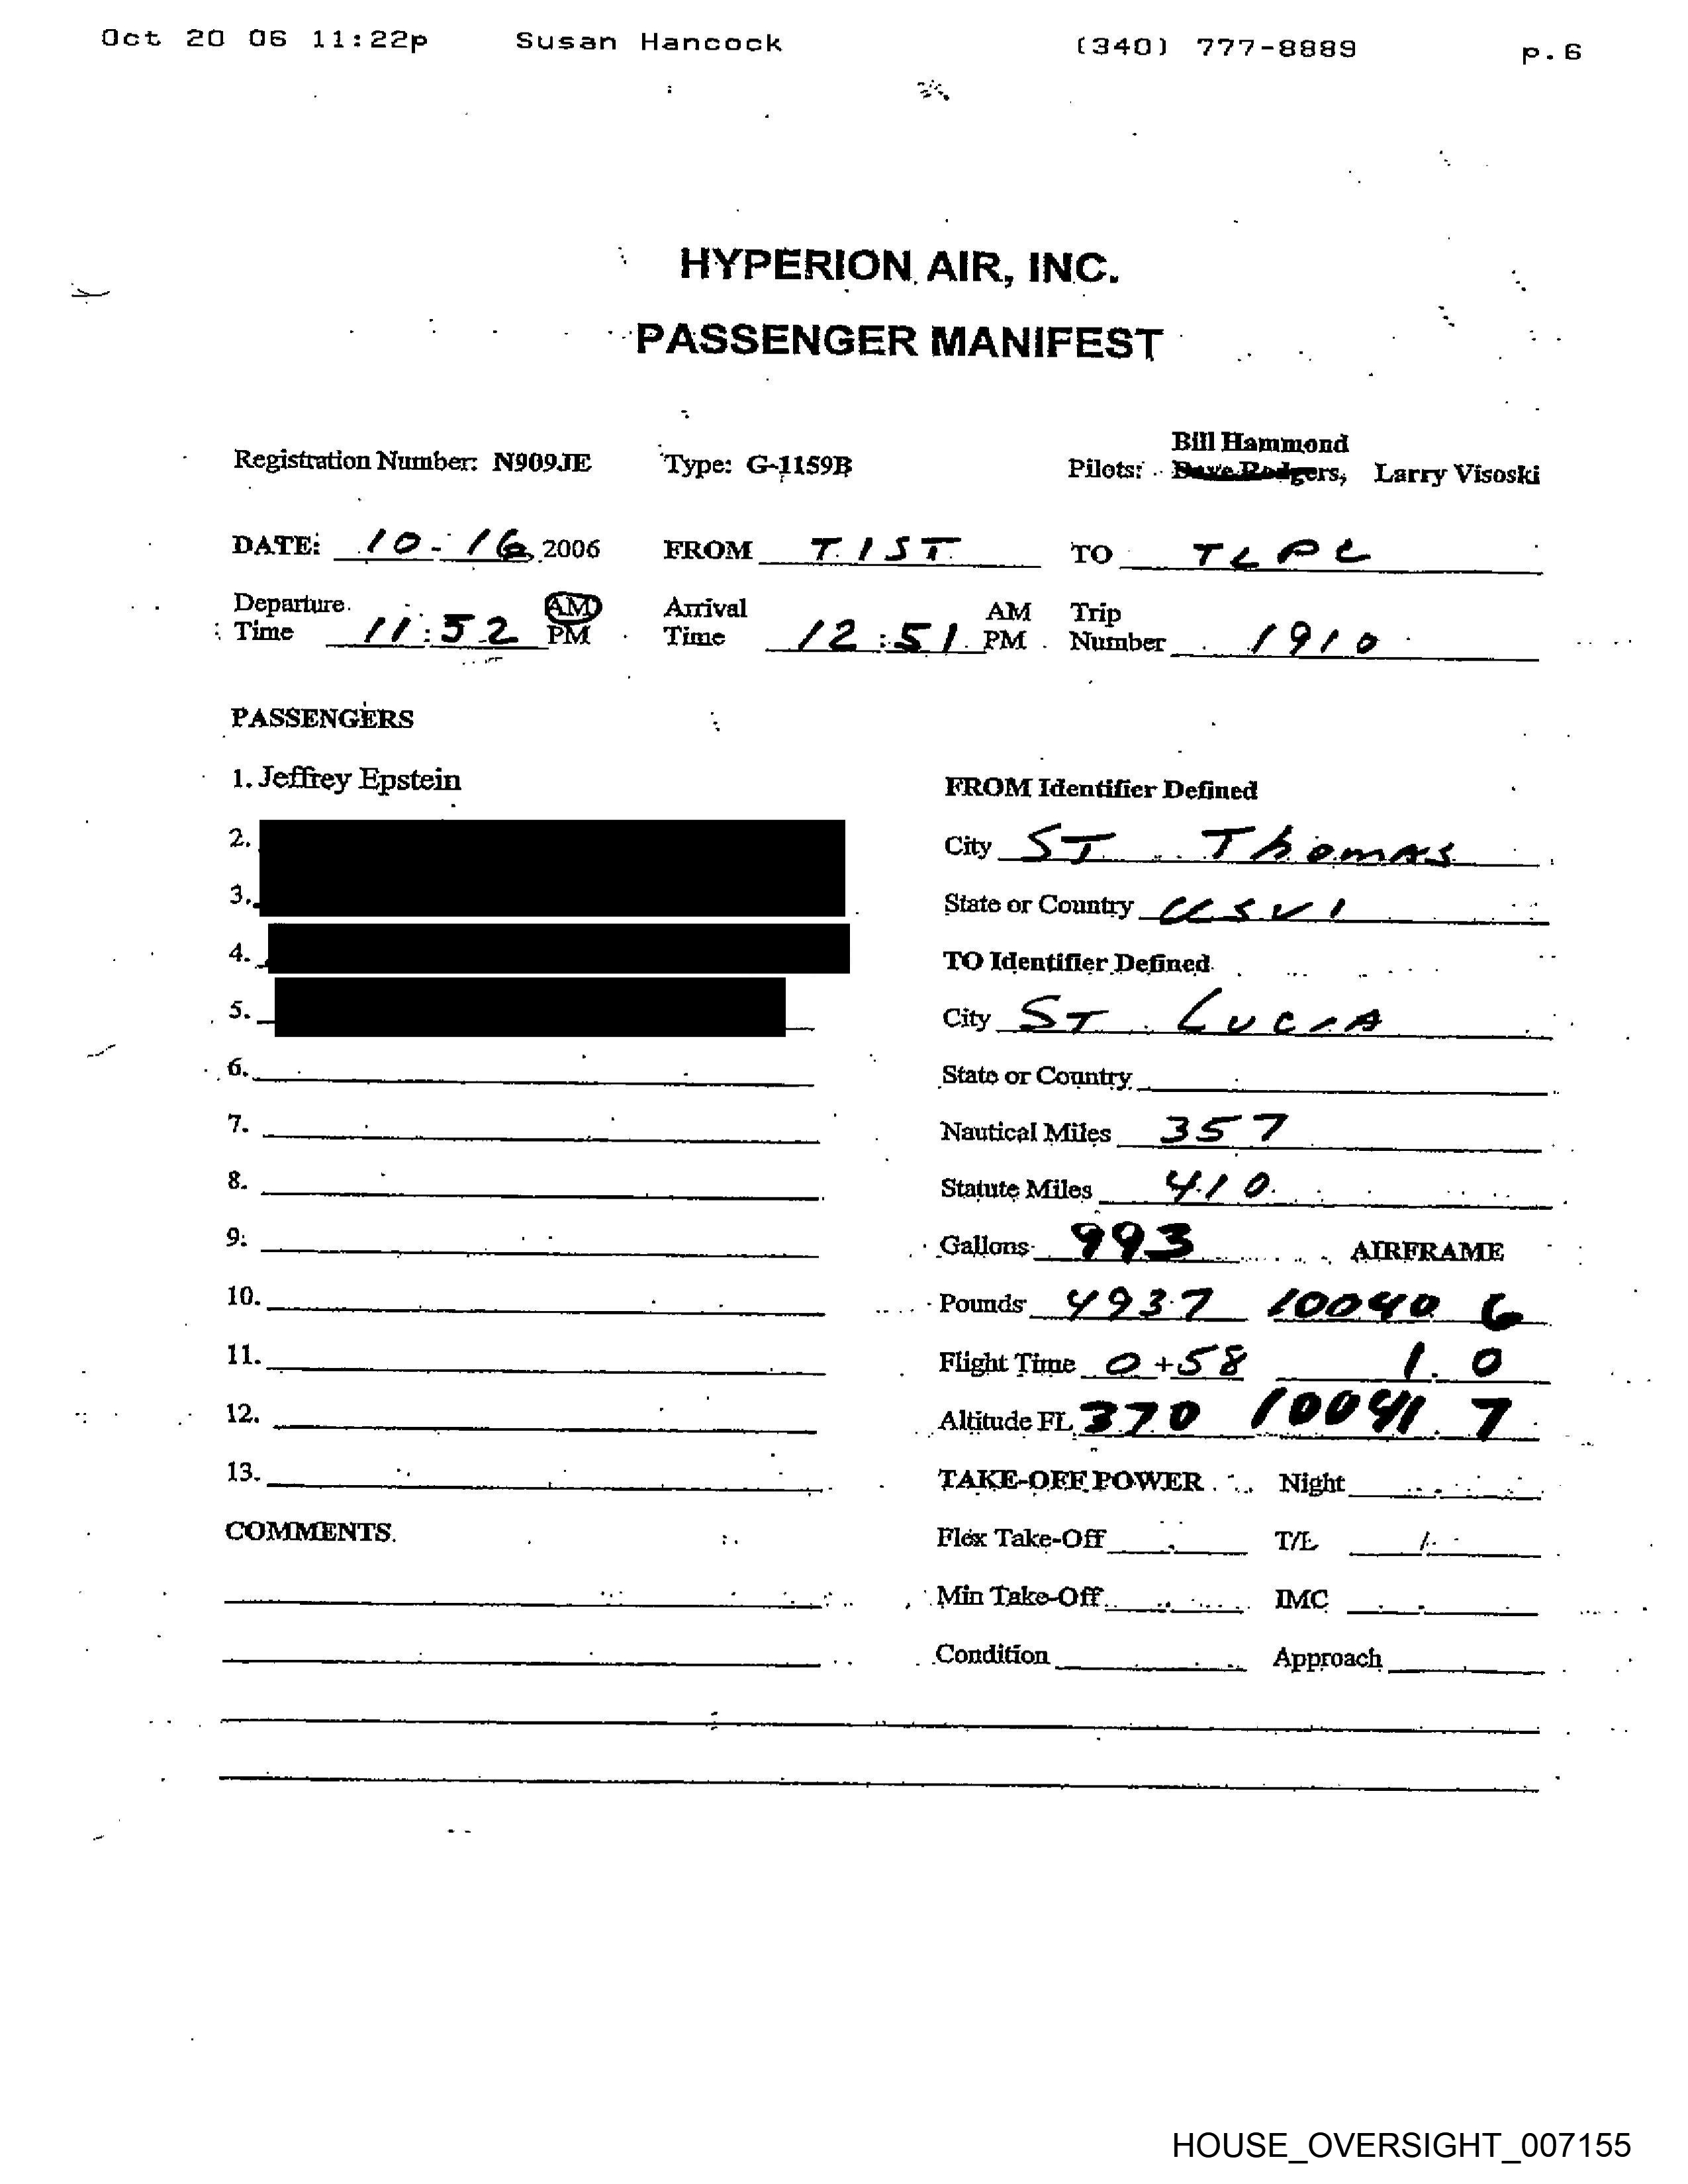 Oct 20 06 11:22p Susan Hancock (340) 777-8889 p.6
HYPERION AIR, INC.
PASSENGER MANIFEST
Bill Hammond
Registration Number: N909JE Type: G-1159B Pilots: Dave Rodgers, Larry Visoski
DATE: 10-16, 2006 FROM TIST TO TLPL
Departure Time 11:52 AM PM Arrival Time 12:51 AM PM Trip Number 1910
PASSENGERS
1. Jeffrey Epstein
FROM Identifier Defined
2.
City ST Thomas
3.
State or Country USVI
4.
TO Identifier Defined
5.
City ST LUCIA
6.
State or Country
7.
Nautical Miles 357
8.
Statute Miles 410
9.
Gallons 993 AIRFRAME
10.
Pounds 4937 10040 6
11.
Flight Time 0+58 1.0
12.
Altitude FL 370 10041.7
13.
TAKE-OFF POWER Night
COMMENTS
Flex Take-Off T/L /
Min Take-Off IMC
Condition Approach
HOUSE_OVERSIGHT_007155